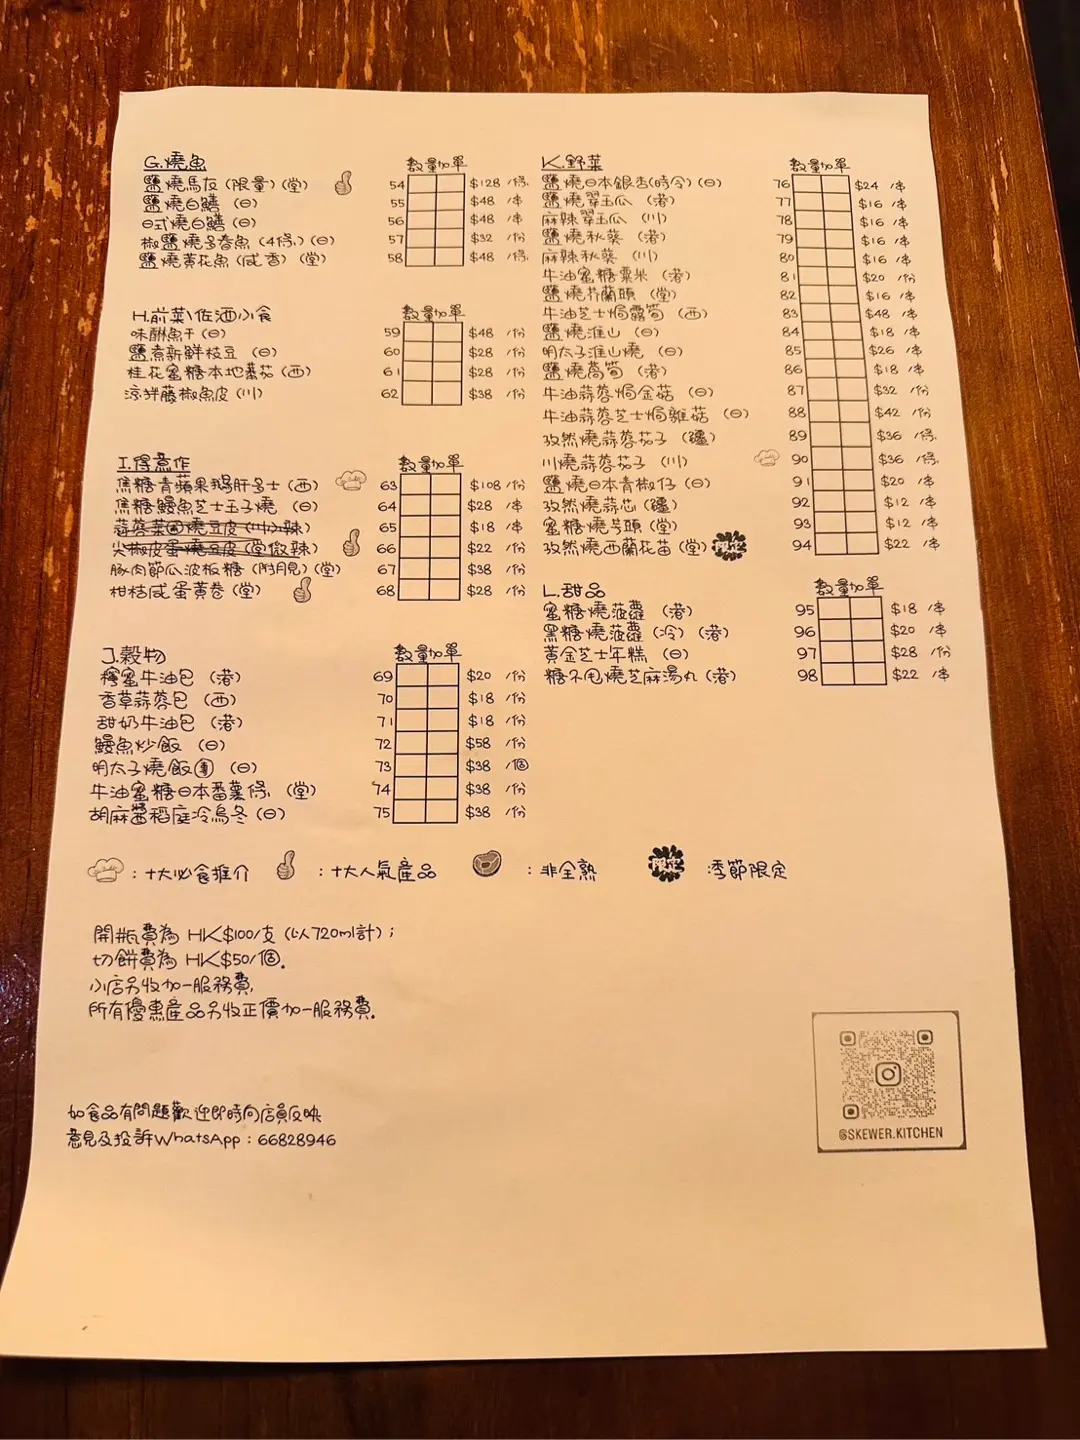 G.燒魚 數量加單
鹽燒馬友(限量)(堂) 54 $128 /條
鹽燒白鱔 (日) 55 $48 /串
日式燒白鱔 (日) 56 $48 /串
椒鹽燒多春魚 (4條) (日) 57 $32 /份
鹽燒黃花魚 (咸香) (堂) 58 $48 /條
H.前菜\佐酒小食 數量加單
味醂魚干 (日) 59 $48 /份
鹽煮新鮮枝豆 (日) 60 $28 /份
桂花蜜糖本地蕃茄 (西) 61 $28 /份
涼拌藤椒魚皮 (川) 62 $38 /份
I.得意作 數量加單
焦糖青蘋果鵝肝多士 (西) 63 $108 /份
焦糖鰻魚芝士玉子燒 (日) 64 $28 /串
蒜蓉菜圃燒豆皮 (川小辣) 65 $18 /串
尖椒皮蛋燒豆皮 (堂微辣) 66 $22 /份
豚肉節瓜波板糖 (附月見) (堂) 67 $38 /份
柑桔咸蛋黃卷 (堂) 68 $28 /份
J.穀物 數量加單
檸蜜牛油包 (港) 69 $20 /份
香草蒜蓉包 (西) 70 $18 /份
甜奶牛油包 (港) 71 $18 /份
鰻魚炒飯 (日) 72 $58 /份
明太子燒飯團 (日) 73 $38 /個
牛油蜜糖日本番薯條 (堂) 74 $38 /份
胡麻醬稻庭冷烏冬 (日) 75 $38 /份
K.野菜 數量加單
鹽燒日本銀杏(時令) (日) 76 $24 /串
鹽燒翠玉瓜 (港) 77 $16 /串
麻辣翠玉瓜 (川) 78 $16 /串
鹽燒秋葵 (港) 79 $16 /串
麻辣秋葵 (川) 80 $16 /串
牛油蜜糖粟米 (港) 81 $20 /份
鹽燒芥蘭頭 (堂) 82 $16 /串
牛油芝士焗露筍 (西) 83 $48 /串
鹽燒淮山 (日) 84 $18 /串
明太子淮山燒 (日) 85 $26 /串
鹽燒萵筍 (港) 86 $18 /串
牛油蒜蓉焗金菇 (日) 87 $32 /份
牛油蒜蓉芝士焗雜菇 (日) 88 $42 /份
孜然燒蒜蓉茄子 (疆) 89 $36 /條
川燒蒜蓉茄子 (川) 90 $36 /條
鹽燒日本青椒仔 (日) 91 $20 /串
孜然燒蒜芯 (疆) 92 $12 /串
蜜糖燒芋頭 (堂) 93 $12 /串
孜然燒西蘭花苗 (堂) 限定 94 $22 /串
L.甜品 數量加單
蜜糖燒菠蘿 (港) 95 $18 /串
黑糖燒菠蘿 (冷) (港) 96 $20 /串
黃金芝士年糕 (日) 97 $28 /份
糖不甩燒芝麻湯丸 (港) 98 $22 /串
:十大必食推介 :十大人氣產品 :非全熟 限定 :季節限定
開瓶費為 HK$100/支 (以720ml計);
切餅費為 HK$50/個.
小店另收加一服務費.
所有優惠產品另收正價加一服務費.
如食品有問題歡迎即時向店員反映
意見及投訴WhatsApp:66828946
@SKEWER.KITCHEN